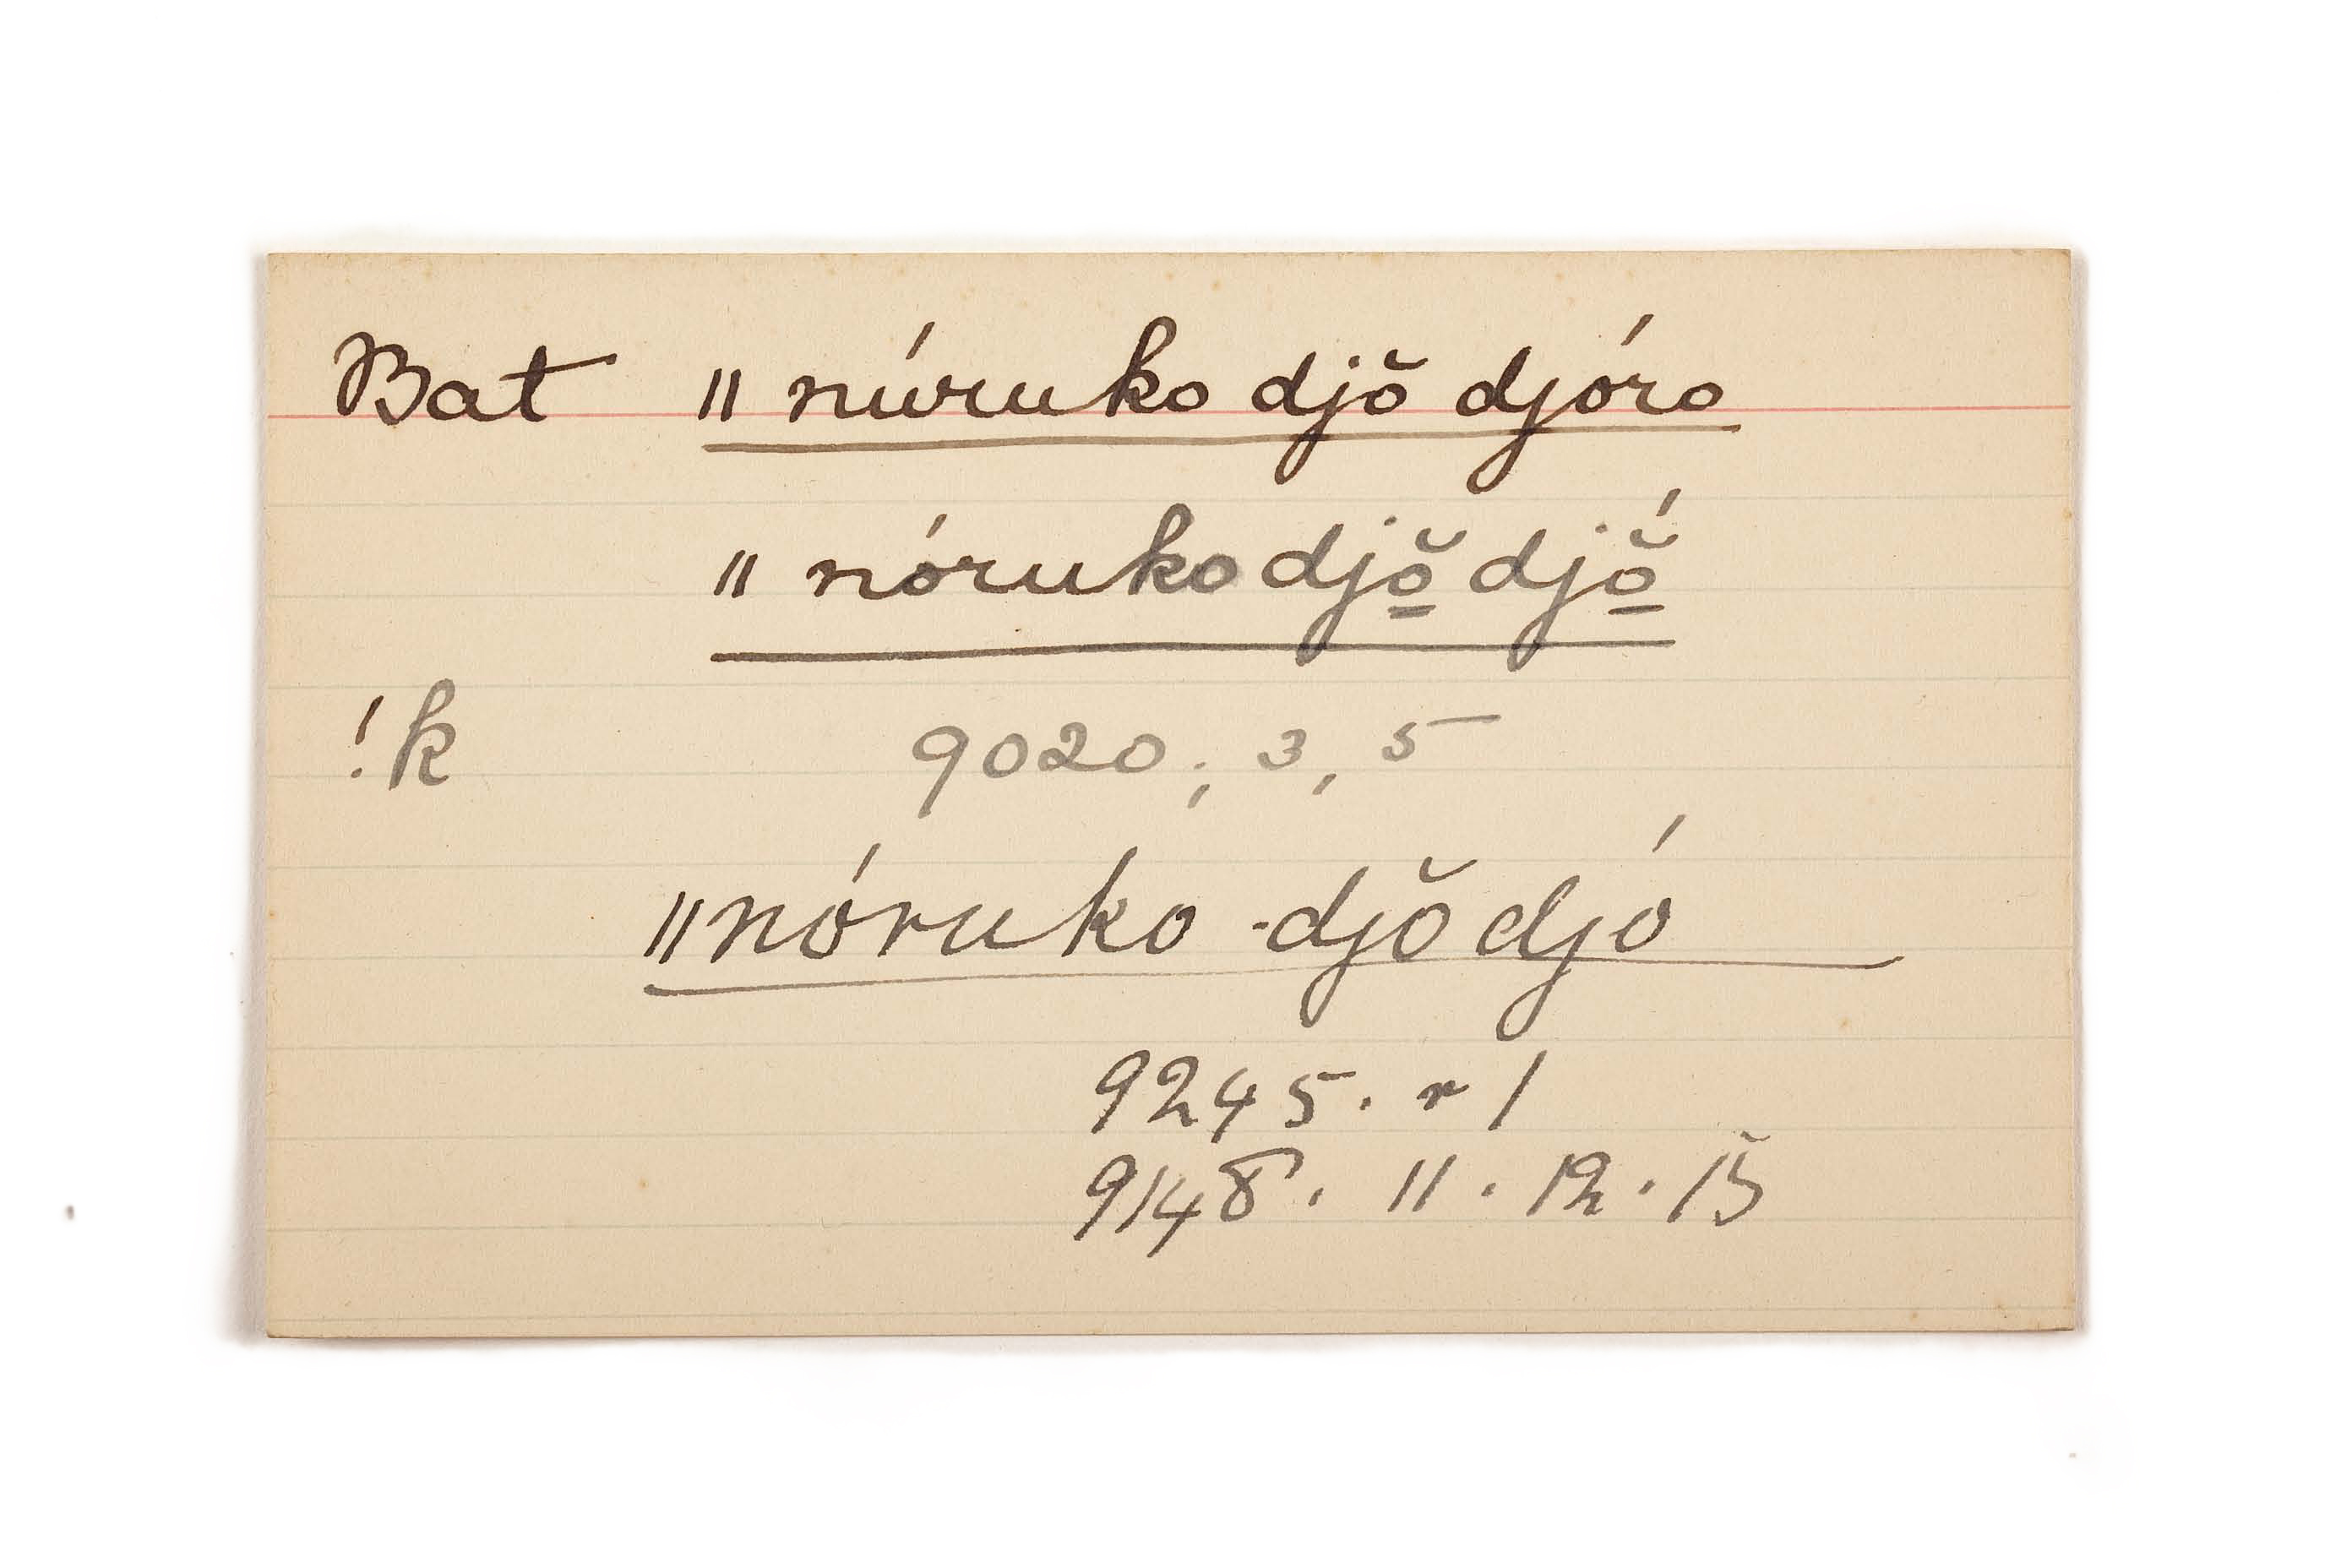 Bat ǁ núruko djŏ djóro
ǁ nóruko djŏ̠ djŏ̠́
!k 9020; 3, 5
ǁnóruko -djŏ djó
9245. r 1
9148. 11. 12. 15